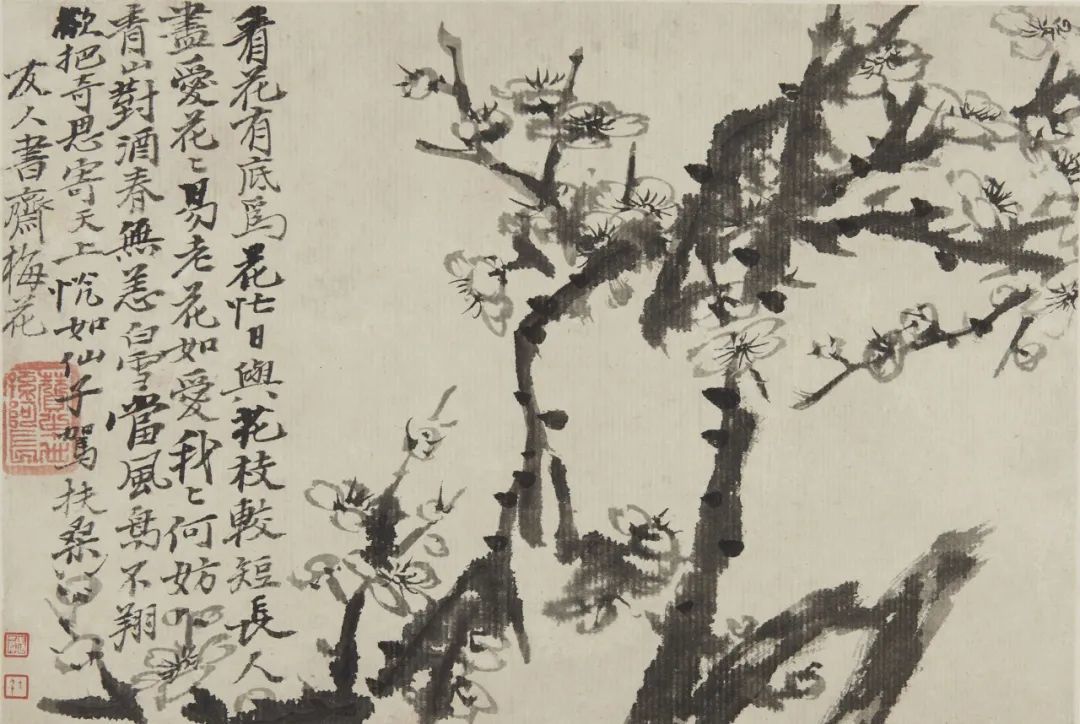 看花有底爲花忙日與花枝較短長人
盡愛花〻易老花如愛我〻何妨
青山對酒春無恙白雪當風不翔
欲把奇思寄天上恍如仙子駕扶桑
友人書齋梅花
贊之十世孫阿長